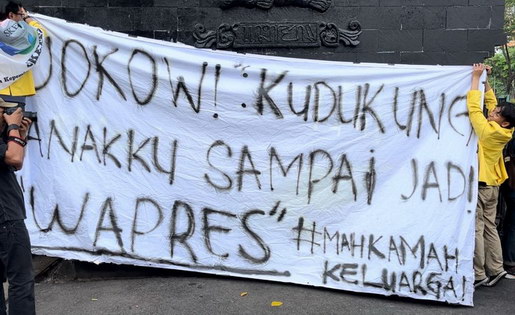 JOKOW! : KUDUKUNG
ANAKKU SAMPAI JADI
"WAPRES" #MAHKAMAH
KELUARGA!